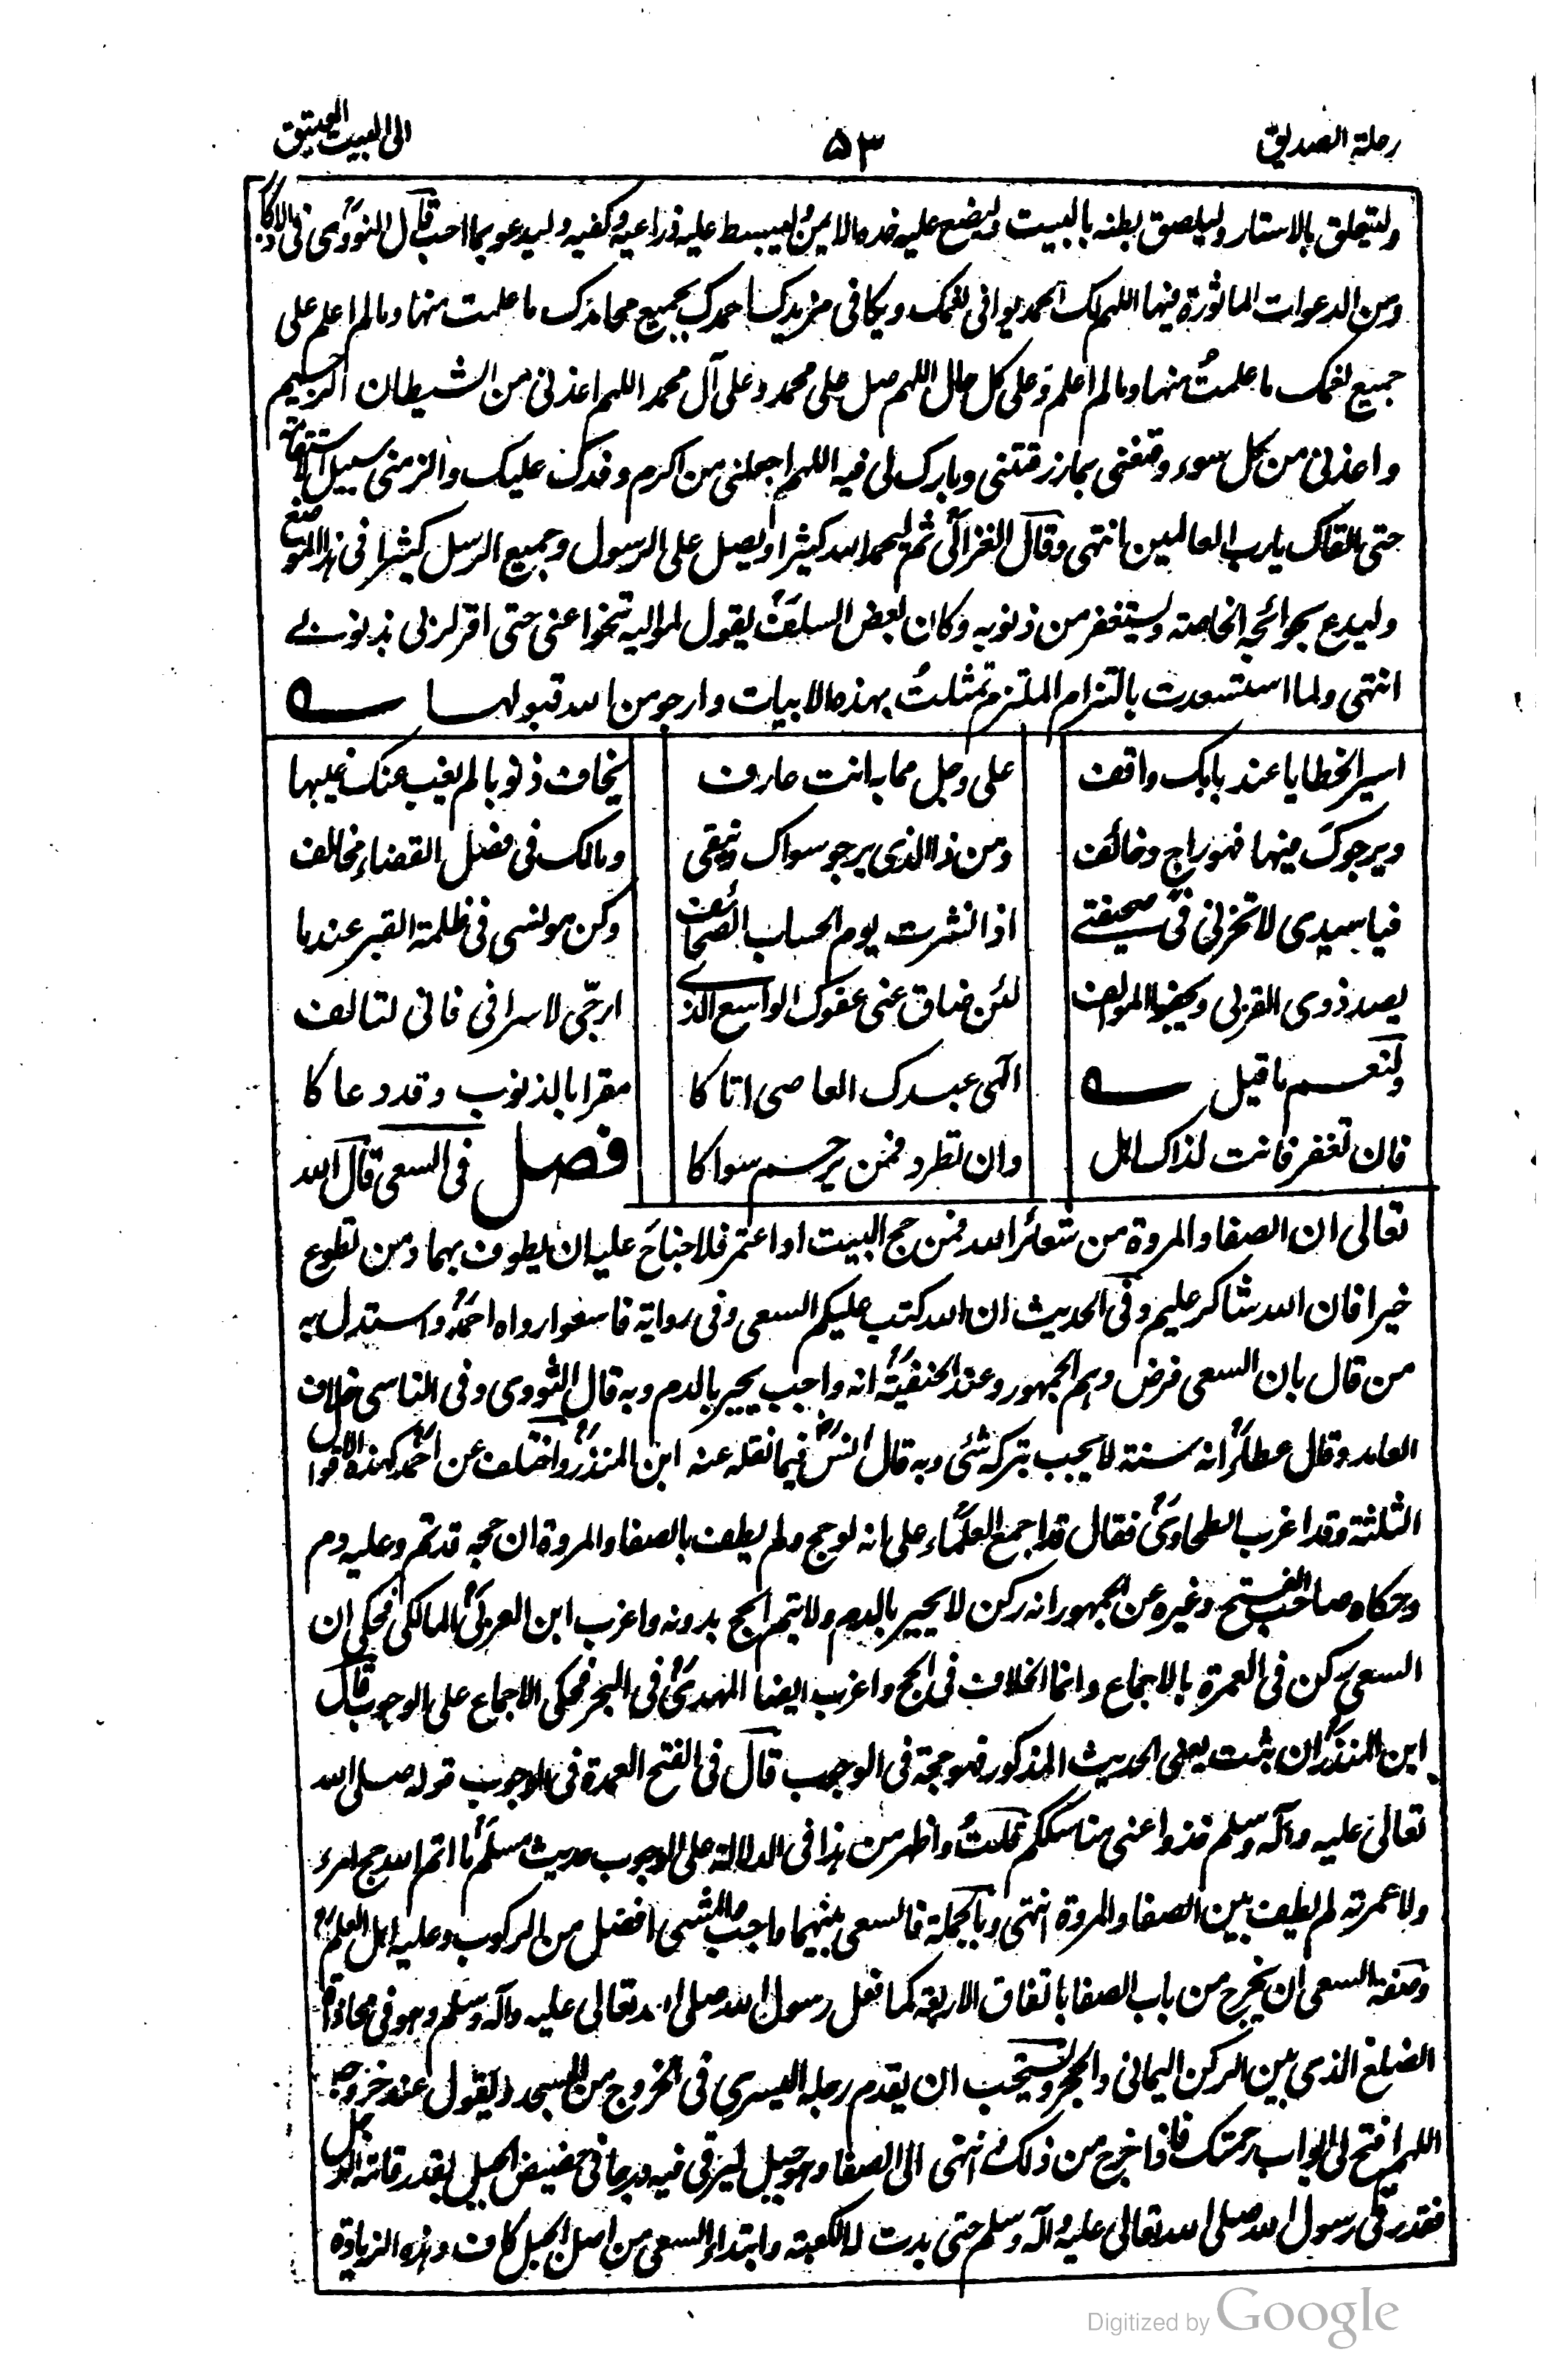 رحلة الصديق
۵۳
الى البيت العتيق
وليتعلق بالاستار وليلصق بطنه بالبيت وليضع عليه خده الايمن وليبسط عليه ذراعيه وكفيه وليدعو بما احب قال النووى فى الاذكار
ومن الدعوات الماثورة فيها اللهم لك الحمد يوافى نعمك ويكافى مزيدك احمدك بجميع محامدك ما علمت منها وما لم اعلم على
جميع نعمك ما علمت منها وما لم اعلم وعلى كل حال اللهم صل على محمد وعلى آل محمد اللهم اعذنى من الشيطان الرجيم
واعذنى من كل سوء وقنعنى بما رزقتنى وبارك لى فيه اللهم اجعلنى من اكرم وفدك عليك والزمنى سبيل الاستقامة
حتى القاك يا رب العالمين انتهى وقال الغزالى ثم ليحمد الله كثيرا ويصل على الرسول وجميع الرسل كثيرا فى هذا الموضع
وليدع بحوائجه الخاصة وليستغفر من ذنوبه وكان بعض السلف يقول لمواليه تنحوا عنى حتى اقر لربى بذنوبے
انتهى ولما استسعدت بالتزام الملتزم تمثلت بهذه الابيات وارجو من الله قبولها
اسير الخطايا عند بابك واقف على وجل مما به انت عارف يخاف ذنوبا لم يغب عنك غيبها
ويرجوك فيها فهو راج وخائف ومن ذا الذى يرجو سواك ويتقى ومالك فى فصل القضاء مخالف
فيا سيدى لا تخزنى فى صحيفتے اذا نشرت يوم الحساب الصحائف وكن مونسى فى ظلمة القبر عندما
يصد ذوى القربى ويجفو الموالف لئن ضاق عنى عفوك الواسع الذے ارجّى لاسرافى فانى لتالف
ولنعم ما قيل الٓهى عبدك العاصى اتاكا مقرا بالذنوب وقد دعاكا
فان تغفر فانت لذاك اهل وان تطرد فمن يرحم سواكا فصل فى السعى قال الله
تعالى ان الصفا والمروة من شعائر الله فمن حج البيت او اعتمر فلا جناح عليه ان يطوف بهما ومن تطوع
خيرا فان الله شاكر عليم وفى الحديث ان الله كتب عليكم السعى وفى رواية فاسعوا رواه احمد واستدل به
من قال بان السعى فرض وهم الجمهور وعند الحنفية انه واجب يجبر بالدم وبه قال الثورى وفى الناسى خلاف
العامد وقال عطاء انه سنة لا يجب بتركه شئ وبه قال انس فيما نقله عنه ابن المنذر واختلف عن احمد كهذه الاقوال
الثلثة وقد اغرب الطحاوى فقال قد اجمع العلماء على انه لو حج ولم يطف بالصفا والمروة ان حجه قد تم وعليه دم
وحكاه صاحب الفتح وغيره عن الجمهور انه ركن لا يجبر بالدم ولا يتم الحج بدونه واغرب ابن العربى المالكى فحكى ان
السعى ركن فى العمرة بالاجماع وانما الخلاف فى الحج واغرب ايضا المهدى فى البحر فحكى الاجماع على الوجوب قال
ابن المنذر ان ثبت يعنى الحديث المذكور فهو حجة فى الوجوب قال فى الفتح العمدة فى الوجوب قوله صلى الله
تعالى عليه وآله وسلم خذوا عنى مناسككم قلت واظهر من هذا فى الدلالة على الوجوب حديث مسلم ما اتم الله حج امرء
ولا عمرته لم يطف بين الصفا والمروة انتهى وبالجملة فالسعى بينهما واجب والمشى افضل من الركوب وعليه اهل العلم
وصفة السعى ان يخرج من باب الصفا باتفاق الاربعة كما فعل رسول الله صلى الله تعالى عليه وآله وسلم وهو فى محاذاة
الضلع الذى بين الركن اليمانى والحجر ويستحب ان يقدم رجله اليسرى فى الخروج من المسجد ويقول عند خروجه
اللهم افتح لى ابواب رحمتك فاذا خرج من ذلك وانتهى الى الصفا وهو جبل ليرقى فيه درجا فى حضيض الجبل بقدر قامة الرجل
فقد رقى رسول الله صلى الله تعالى عليه وآله وسلم حتى بدت له الكعبة وابتداء السعى من اصل الجبل كاف وهذه الزيادة
Digitized by Google